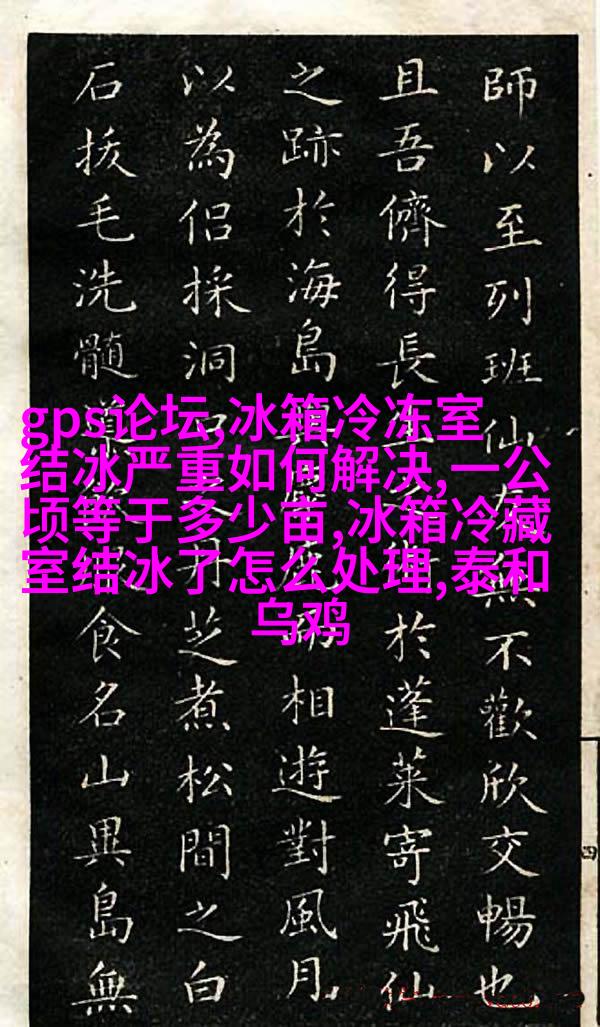 師以至列班仙有無不歡欣交暢也
且吾儕得長生於蓬萊寄飛仙
之跡於海島相遊對風月
以為侶採洞丹芝煮松間之白
石拔毛洗髓食名山異島無
gps论坛,冰箱冷冻室
结冰严重如何解决,一公
顷等于多少亩,冰箱冷藏
室结冰了怎么处理,泰和
乌鸡